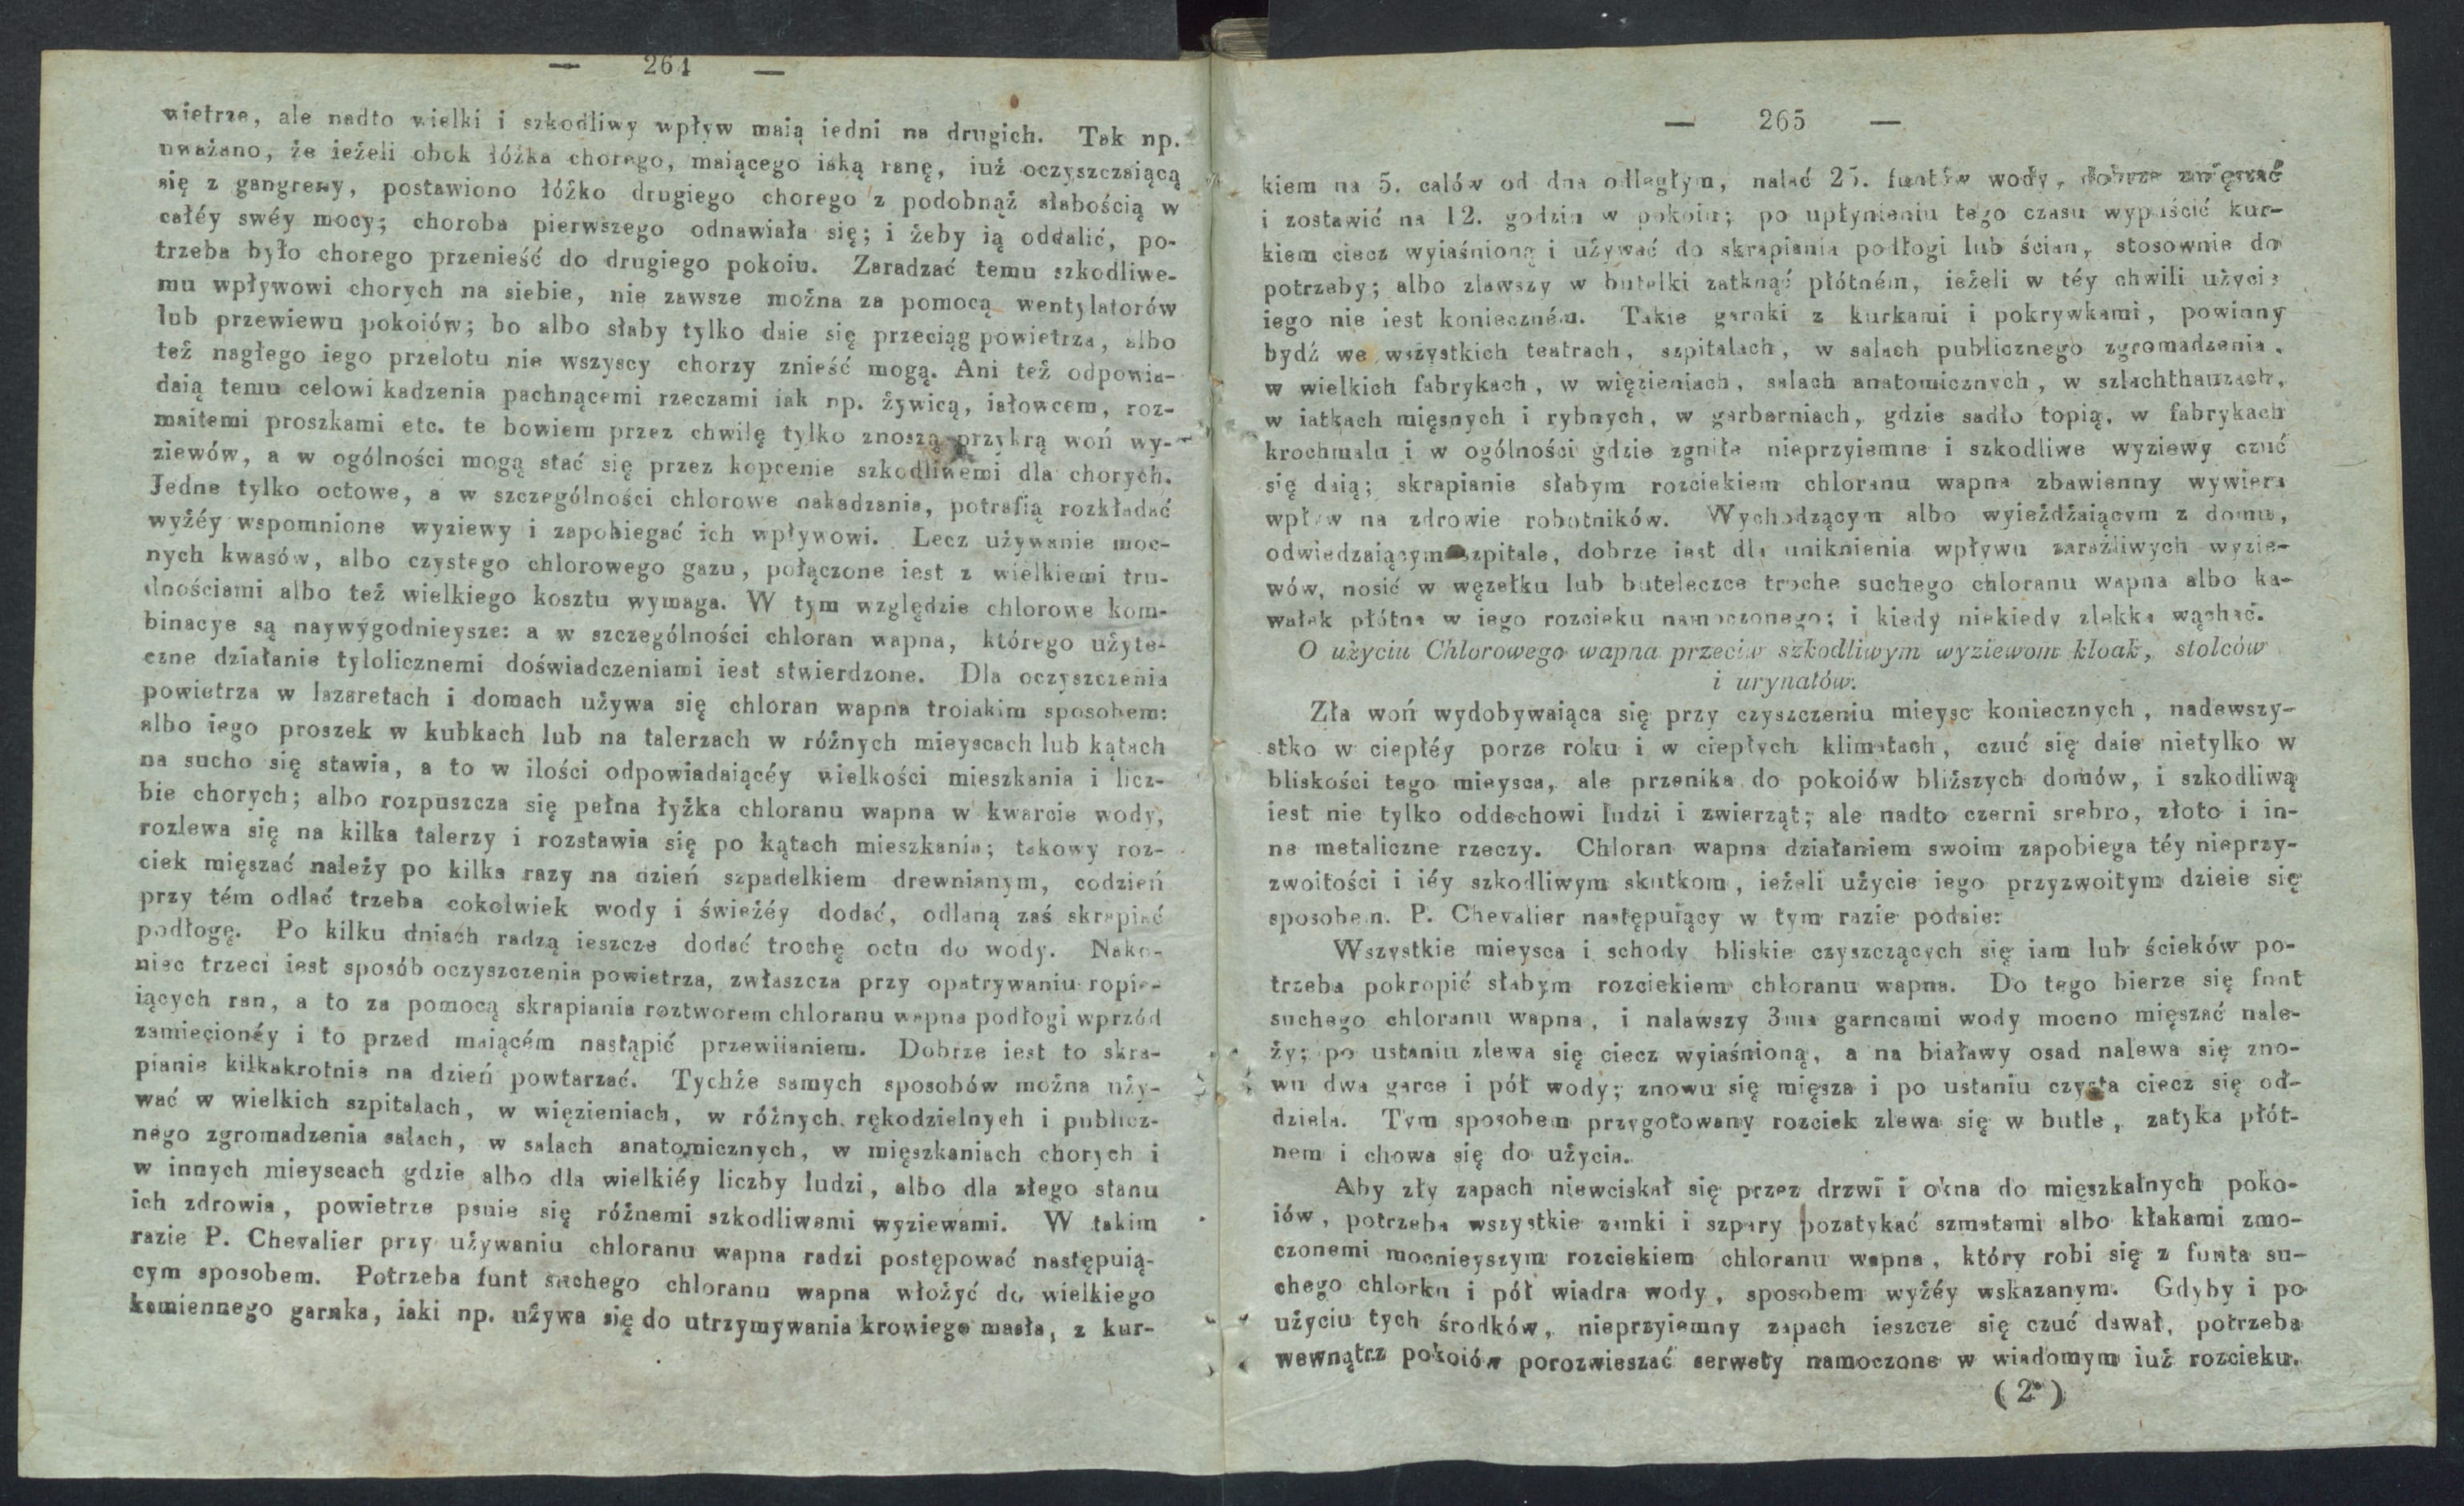 — 264 —
wietrze, ale nadto wielki i szkodliwy wpływ maią iedni na drugich. Tak np.
uważano, że ieżeli obok łóżka chorego, maiącego iaką ranę, iuż oczyszczaiącą
się z gangreny, postawiono łóżko drugiego chorego z podobnąż słabością w
całéy swéy mocy; choroba pierwszego odnawiała się; i żeby ią oddalić, po-
trzeba było chorego przenieść do drugiego pokoiu. Zaradzać temu szkodliwe-
mu wpływowi chorych na siebie, nie zawsze można za pomocą wentylatorów
lub przewiewu pokoiów; bo albo słaby tylko daie się przeciąg powietrza, albo
też nagłego iego przelotu nie wszyscy chorzy znieść mogą. Ani też odpowia-
daią temu celowi kadzenia pachnącemi rzeczami iak np. żywicą, iałowcem, roz-
maitemi proszkami etc. te bowiem przez chwilę tylko znoszą przykrą woń wy-
ziewów, a w ogólności mogą stać się przez kopcenie szkodliwemi dla chorych.
Jedne tylko octowe, a w szczególności chlorowe nakadzania, potrafią rozkładać
wyżéy wspomnione wyziewy i zapobiegać ich wpływowi. Lecz używanie moc-
nych kwasów, albo czystego chlorowego gazu, połączone iest z wielkiemi tru-
dnościami albo też wielkiego kosztu wymaga. W tym względzie chlorowe kom-
binacye są naywygodnieysze: a w szczególności chloran wapna, którego użyte-
czne działanie tylolicznemi doświadczeniami iest stwierdzone. Dla oczyszczenia
powietrza w lazaretach i domach używa się chloran wapna troiakim sposobem:
albo iego proszek w kubkach lub na talerzach w różnych mieyscach lub kątach
na sucho się stawia, a to w ilości odpowiadaiącéy wielkości mieszkania i licz-
bie chorych; albo rozpuszcza się pełna łyżka chloranu wapna w kwarcie wody,
rozlewa się na kilka talerzy i rozstawia się po kątach mieszkania; takowy roz-
ciek mięszać należy po kilka razy na dzień szpadelkiem drewnianym, codzień
przy tém odlać trzeba cokolwiek wody i świeżéy dodać, odlaną zaś skrapiać
podłogę. Po kilku dniach radzą ieszcze dodać trochę octu do wody. Nako-
niec trzeci iest sposób oczyszczenia powietrza, zwłaszcza przy opatrywaniu ropie-
iących ran, a to za pomocą skrapiania roztworem chloranu wapna podłogi wprzód
zamiecionéy i to przed maiącém nastąpić przewiianiem. Dobrze iest to skra-
pianie kilkakrotnie na dzień powtarzać. Tychże samych sposobów można uży-
wać w wielkich szpitalach, w więzieniach, w różnych rękodzielnych i publicz-
nego zgromadzenia salach, w salach anatomicznych, w mięszkaniach chorych i
w innych mieyscach gdzie albo dla wielkiéy liczby ludzi, albo dla złego stanu
ich zdrowia, powietrze psuie się różnemi szkodliwemi wyziewami. W takim
razie P. Chevalier przy używaniu chloranu wapna radzi postępować następuią-
cym sposobem. Potrzeba funt suchego chloranu wapna włożyć do wielkiego
kamiennego garnka, iaki np. używa się do utrzymywania krowiego masła, z kur-
— 265 —
kiem na 5. calów od dna odległym, nalać 25. funtów wody, dobrze zmięszać
i zostawić na 12. godzin w pokoiu; po upłynieniu tego czasu wypuścić kur-
kiem ciecz wyiaśnioną i używać do skrapiania podłogi lub ścian, stosownie do
potrzeby; albo zlawszy w butelki zatknąć płótném, ieżeli w téy chwili użycie
iego nie iest konieczném. Takie garnki z kurkami i pokrywkami, powinny
bydź we wszystkich teatrach, szpitalach, w salach publicznego zgromadzenia,
w wielkich fabrykach, w więzieniach, salach anatomicznych, w szlachthauzach,
w iatkach mięsnych i rybnych, w garbarniach, gdzie sadło topią, w fabrykach
krochmalu i w ogólności gdzie zgniłe nieprzyiemne i szkodliwe wyziewy czuć
się daią; skrapianie słabym rozciekiem chloranu wapna zbawienny wywiera
wpływ na zdrowie robotników. Wychodzącym albo wyieżdżaiącym z domu,
odwiedzaiącym szpitale, dobrze iest dla uniknienia wpływu zaraźliwych wyzie-
wów, nosić w węzełku lub buteleczce troche suchego chloranu wapna albo ka-
wałek płótna w iego rozcieku namoczonego; i kiedy niekiedy zlekka wąchać.
O użyciu Chlorowego wapna przeciw szkodliwym wyziewom kloak, stolców
i urynałów.
Zła woń wydobywaiąca się przy czyszczeniu mieysc koniecznych, nadewszy-
stko w ciepłéy porze roku i w ciepłych klimatach, czuć się daie nietylko w
bliskości tego mieysca, ale przenika do pokoiów bliższych domów, i szkodliwą
iest nie tylko oddechowi ludzi i zwierząt; ale nadto czerni srebro, złoto i in-
ne metaliczne rzeczy. Chloran wapna działaniem swoim zapobiega téy nieprzy-
zwoitości i iéy szkodliwym skutkom, ieżeli użycie iego przyzwoitym dzieie się
sposobem. P. Chevalier następuiący w tym razie podaie:
Wszystkie mieysca i schody bliskie czyszczących się iam lub ścieków po-
trzeba pokropić słabym rozciekiem chloranu wapna. Do tego bierze się funt
suchego chloranu wapna, i nalawszy 3ma garncami wody mocno mięszać nale-
ży; po ustaniu zlewa się ciecz wyiaśnioną, a na białawy osad nalewa się zno-
wu dwa garce i pół wody; znowu się mięsza i po ustaniu czysta ciecz się od-
dziela. Tym sposobem przygotowany rozciek zlewa się w butle, zatyka płót-
nem i chowa się do użycia.
Aby zły zapach niewciskał się przez drzwi i okna do mięszkalnych poko-
iów, potrzeba wszystkie zamki i szpary pozatykać szmatami albo kłakami zmo-
czonemi mocnieyszym rozciekiem chloranu wapna, który robi się z funta su-
chego chlorku i pół wiadra wody, sposobem wyżéy wskazanym. Gdyby i po
użyciu tych środków, nieprzyiemny zapach ieszcze się czuć dawał, potrzeba
wewnątrz pokoiów porozwieszać serwety namoczone w wiadomym iuż rozcieku.
(2*)